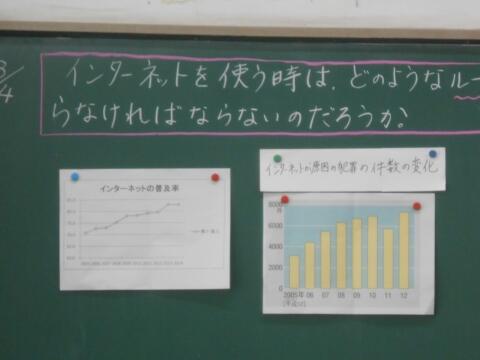 8/4
インターネットを使う時は、どのようなルー
らなければならないのだろうか。
インターネットの普及率
インターネットが原因の犯罪の件数の変化
8000
件
6000
4000
2000
0
2005年 06 07 08 09 10 11 12